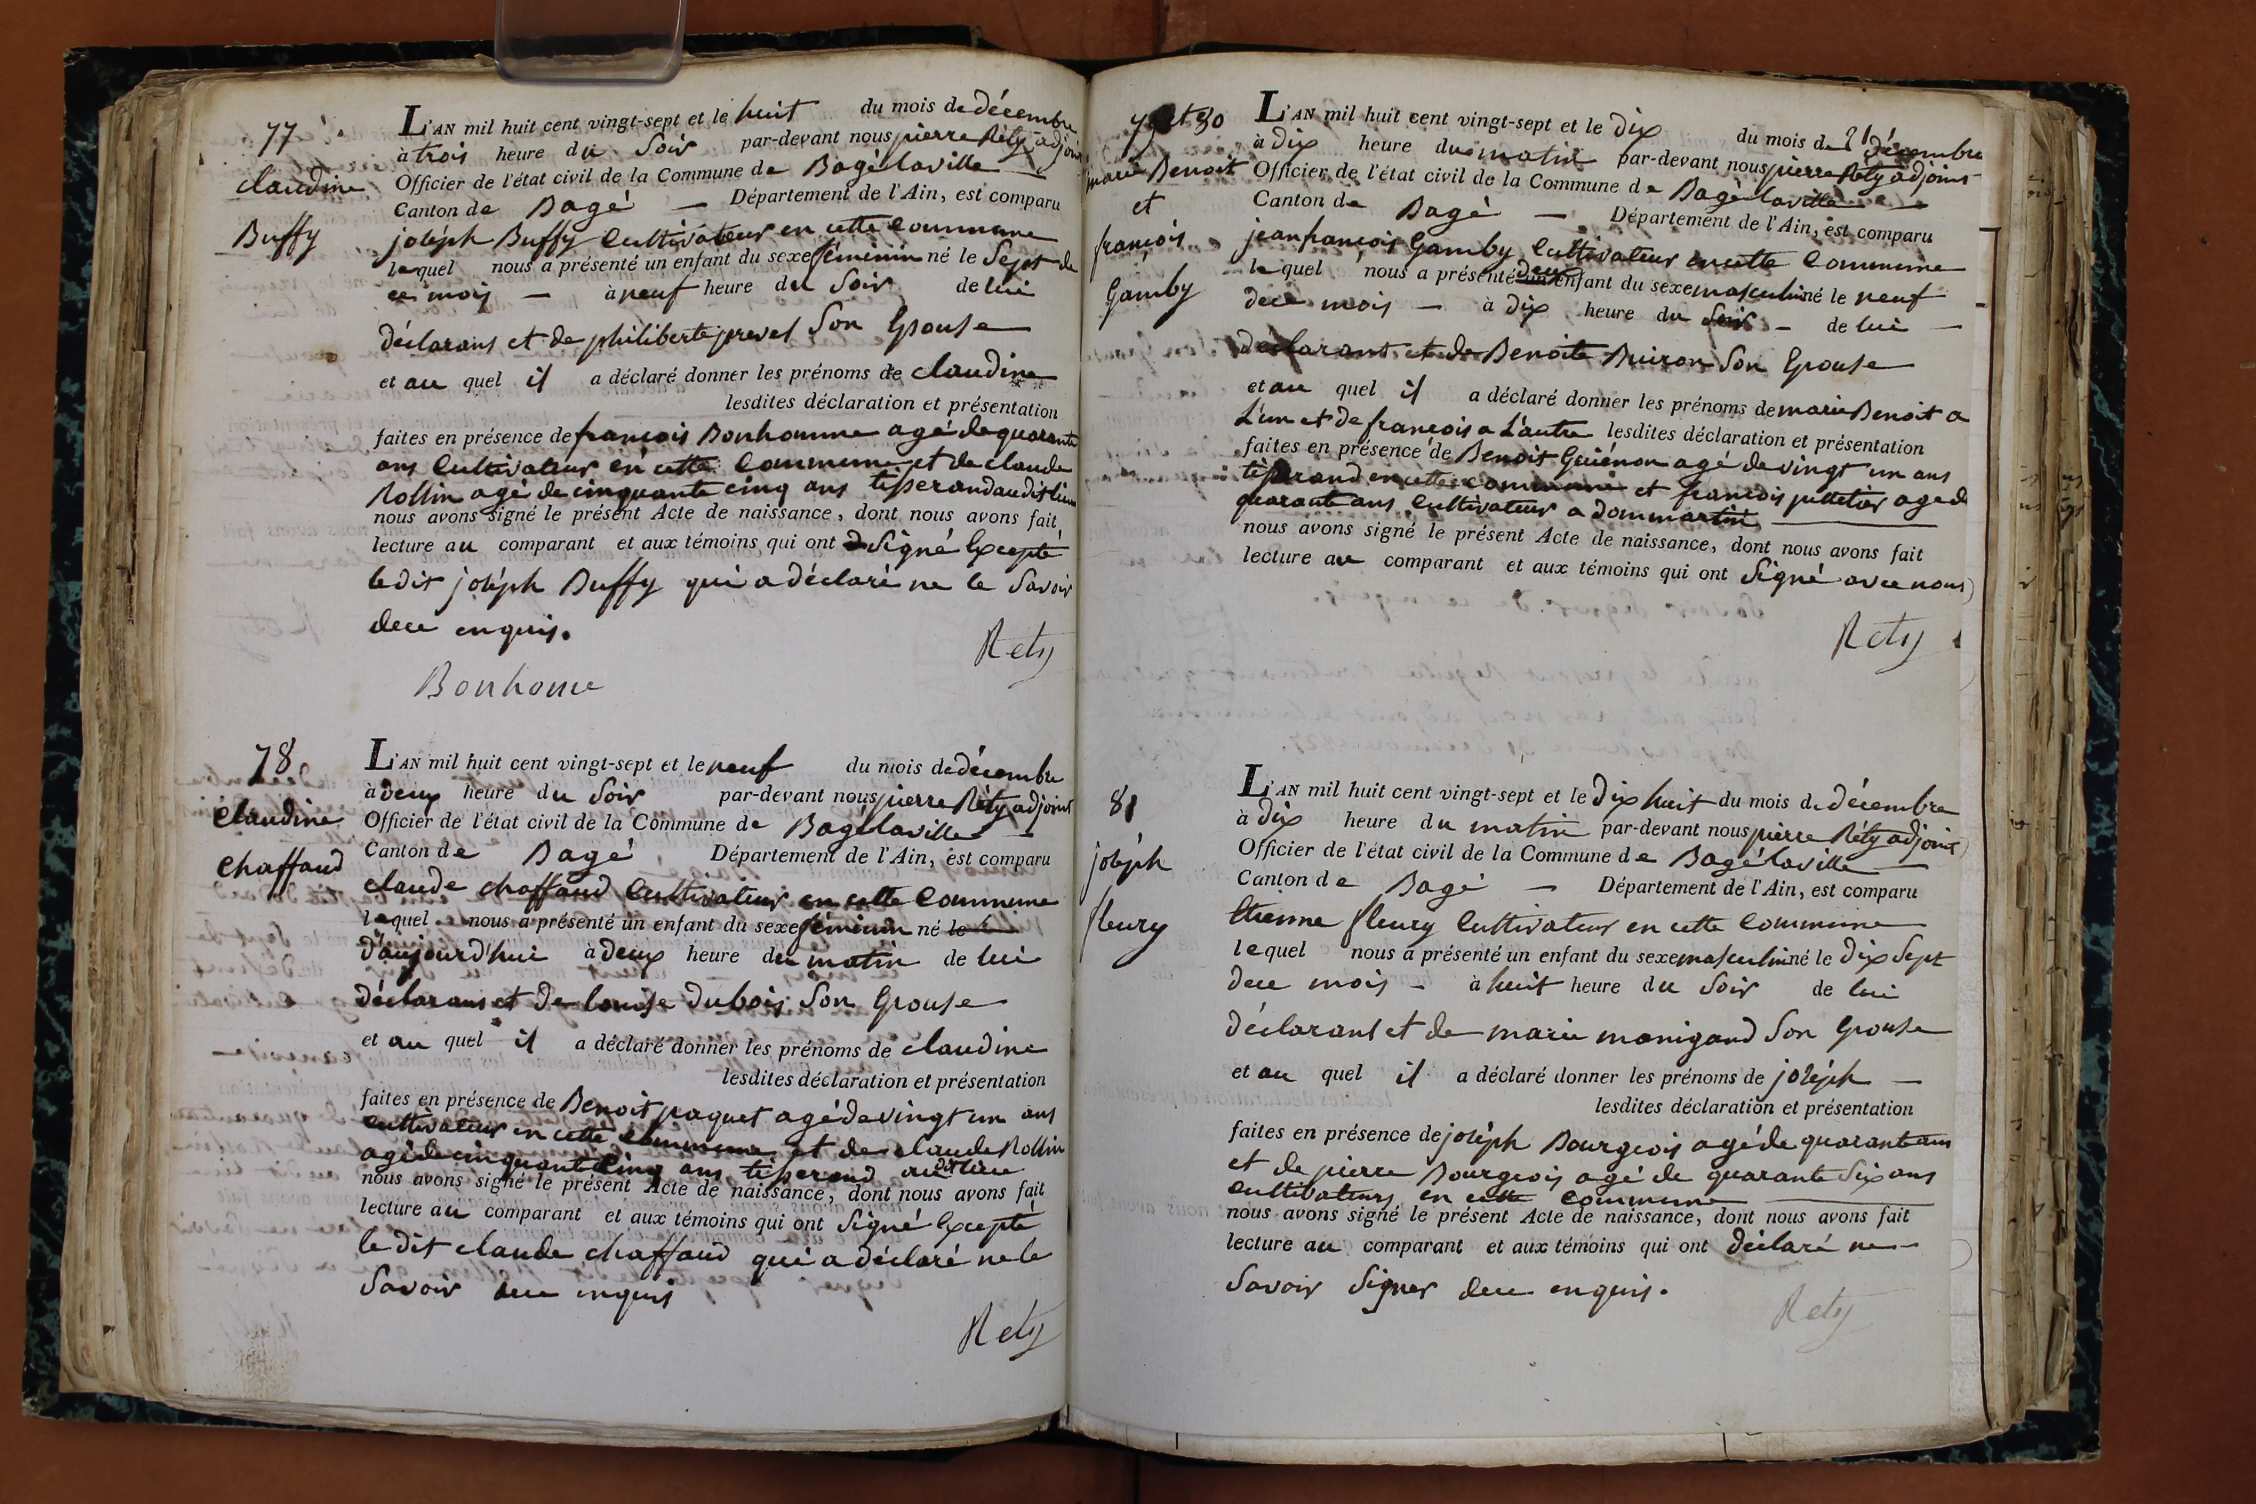 77
claudine
Buffy
L'AN mil huit cent vingt-sept et le huit du mois de décembre
à trois heure du Soir par-devant nous pierre Réty adjoint
Officier de l'état civil de la Commune de Bagélaville
Canton de Bagé — Département de l'Ain, est comparu
joséph Buffy Cultivateur en cette Commune
lequel nous a présenté un enfant du sexe féminin né le Sept de
ce mois — à neuf heure du Soir de lui
déclarans et de philiberte prevel Son Epouse
et au quel il a déclaré donner les prénoms de claudine
lesdites déclaration et présentation
faites en présence de françois Bonhomme agé de quarante
ans Cultivateur en cette Commune et de claude
Rollin agé de cinquante cinq ans tisserand audit lieu
nous avons signé le présent Acte de naissance, dont nous avons fait
lecture au comparant et aux témoins qui ont Signé Excepté
le dit joséph Buffy qui a déclaré ne le Savoir
de ce enquis.
Rety
Bonhome
78
Claudine
Chaffaud
L'AN mil huit cent vingt-sept et le neuf du mois de décembre
à deux heure du Soir par-devant nous pierre Réty adjoint
Officier de l'état civil de la Commune de Bagélaville
Canton de Bagé Département de l'Ain, est comparu
claude chaffaud Cultivateur en cette Commune
lequel nous a présenté un enfant du sexe féminin né le
d'aujourd'hui à deux heure du matin de lui
déclarans et de louise dubois Son Epouse
et au quel il a déclaré donner les prénoms de claudine
lesdites déclaration et présentation
faites en présence de Benoit paquet agé de vingt un ans
Cultivateur en cette Commune et de claude Rollin
agé de cinquante Cinq ans tisserand audit lieu
nous avons signé le présent Acte de naissance, dont nous avons fait
lecture au comparant et aux témoins qui ont Signé Excepté
le dit claude chaffaud qui a déclaré ne le
Savoir de ce enquis
Rety
79 et 80
marie Benoit
et
françois
Gamby
L'AN mil huit cent vingt-sept et le dix du mois de décembre
à dix heure du matin par-devant nous pierre Réty adjoint
Officier de l'état civil de la Commune de Bagélaville
Canton de Bagé — Département de l'Ain, est comparu
jean françois Gamby Cultivateur en cette Commune
lequel nous a présenté un deux enfant du sexe masculin né le neuf
de ce mois — à dix heure du Soir — de lui —
declarant et de Benoite Buiron Son Epouse
et au quel il a déclaré donner les prénoms de marie Benoit a
L'un et de françois a L'autre lesdites déclaration et présentation
faites en présence de Benoit Guiénon agé de vingt un ans
tisserand en cette commune et françois pelletier agé de
quarante ans Cultivateur a dommartin
nous avons signé le présent Acte de naissance, dont nous avons fait
lecture au comparant et aux témoins qui ont Signé avec nous
Rety
81
joséph
fleury
L'AN mil huit cent vingt-sept et le dix huit du mois de décembre
à dix heure du matin par-devant nous pierre Réty adjoint
Officier de l'état civil de la Commune de Bagélaville
Canton de Bagé — Département de l'Ain, est comparu
Etienne fleury Cultivateur en cette Commune
lequel nous a présenté un enfant du sexe masculin né le dix Sept
de ce mois — à huit heure du Soir de lui
déclarant et de marie manigand Son Epouse
et au quel il a déclaré donner les prénoms de joséph —
lesdites déclaration et présentation
faites en présence de joséph Bourgeois agé de quarante ans
et de pierre Bourgeois agé de quarante Six ans
Cultivateurs en cette Commune
nous avons signé le présent Acte de naissance, dont nous avons fait
lecture au comparant et aux témoins qui ont déclaré ne
Savoir Signer de ce enquis.
Rety